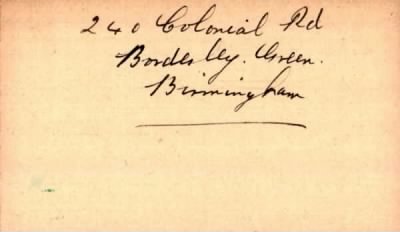 240 Colonial Rd
Bordesley. Green.
Birmingham